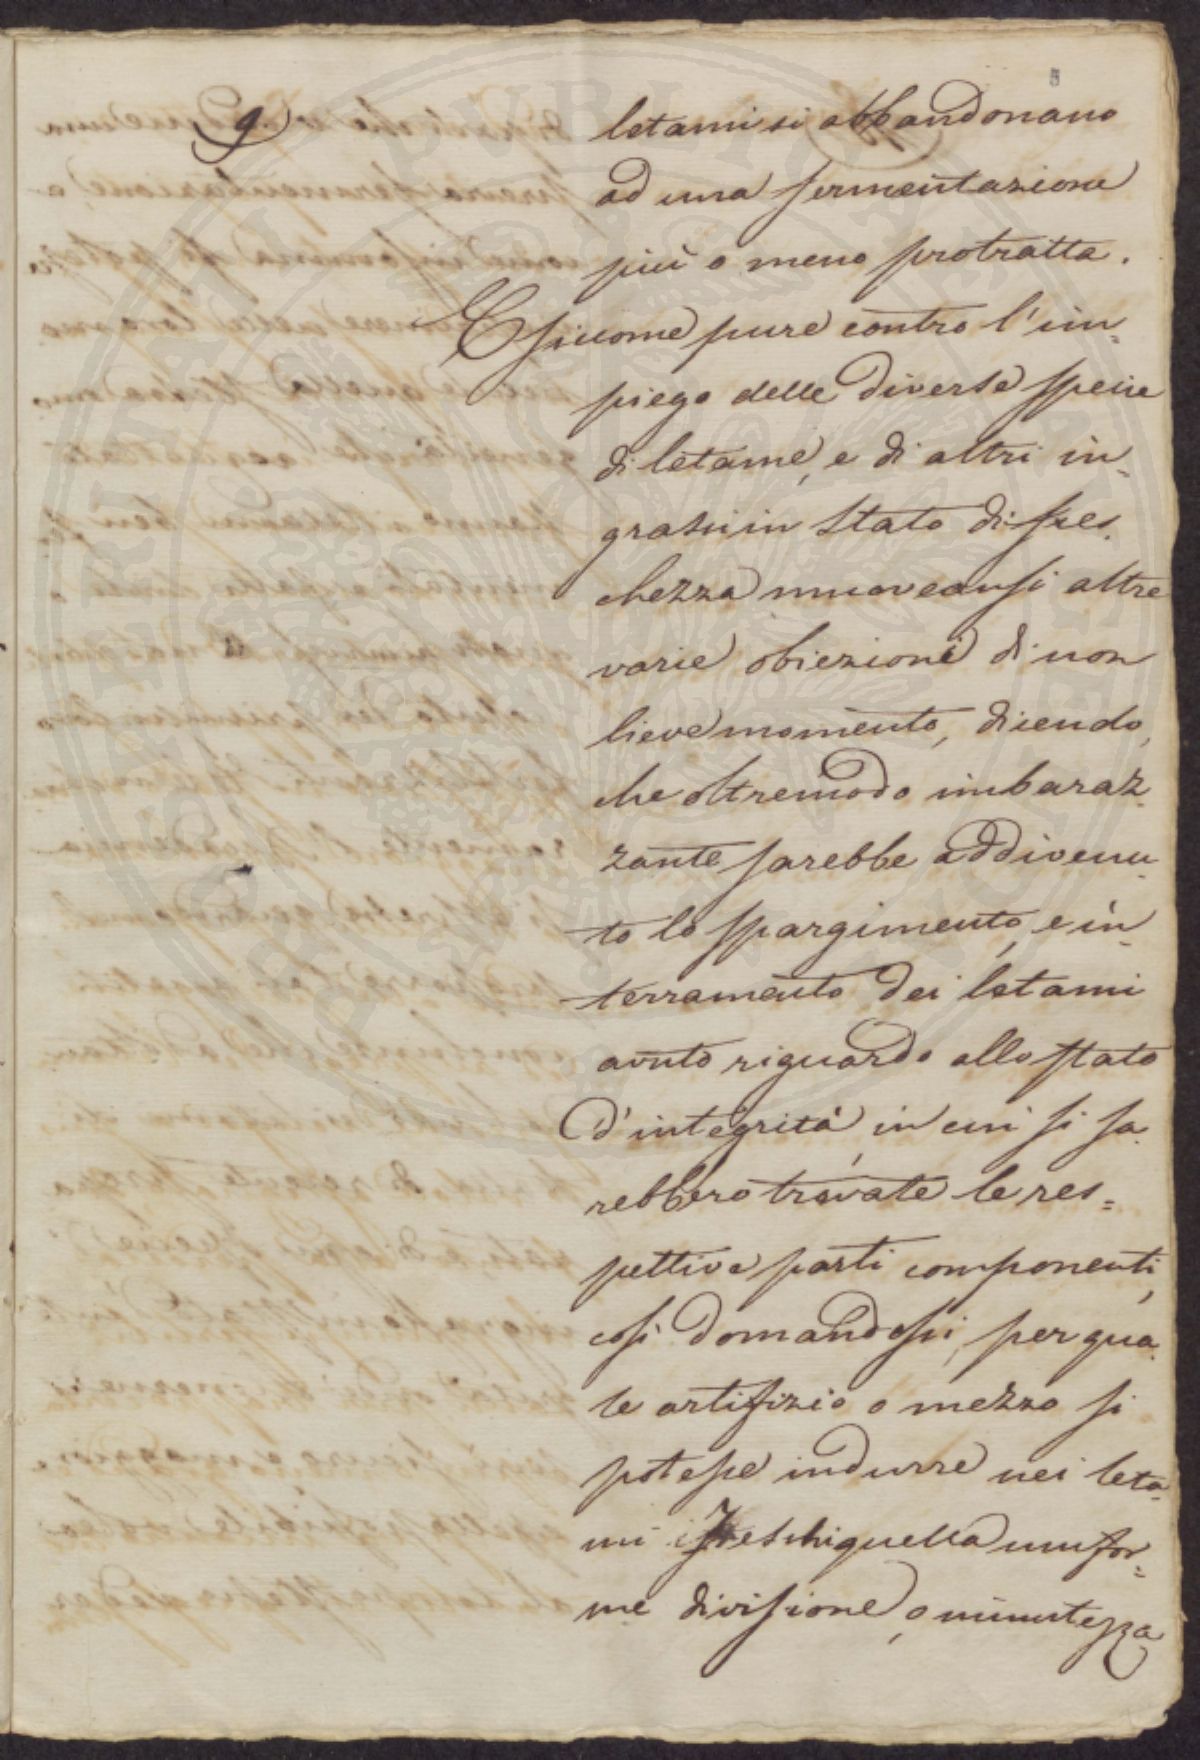 9.
letami si abbandonano
ad una fermentazione
più o meno protratta.
E siccome pure contro l'im=
piego delle diverse specie
di letame, e di altri in=
grassi in stato di fres=
chezza muoveansi altre
varie obiezioni di non
lieve momento, dicendo,
che oltremodo imbaraz=
zante sarebbe addivenu=
to lo spargimento, e in=
terramento dei letami
avuto riguardo allo stato
d'integrità, in cui si sa=
rebbero trovate le res=
pettive parti componenti,
così domandossi, per qua=
le artifizio o mezzo si
potesse indurre nei leta=
mi freschi quella unifor=
me divisione, o minutezza